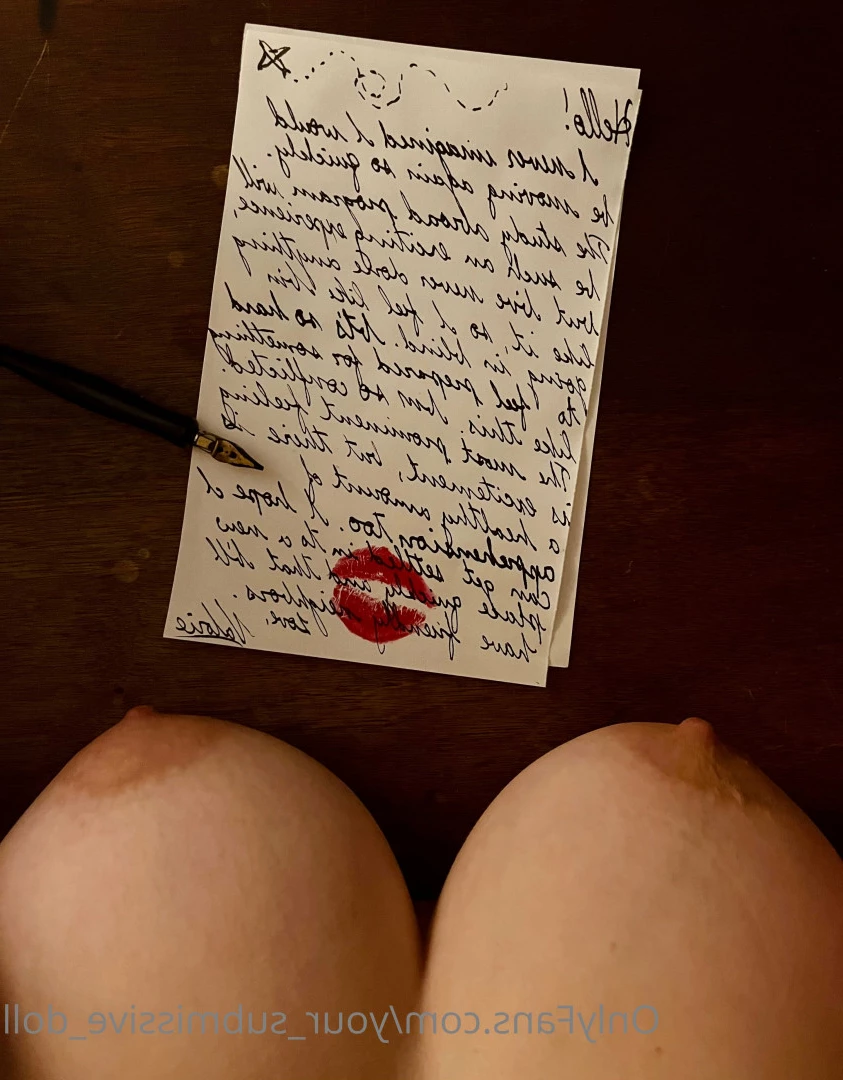 Hello!
I never imagined I would
be moving again so quickly.
The study abroad program will
be such an exciting experience,
but I've never done anything
like it, so I feel like I'm
going in blind. It's so hard
to feel prepared for something
like this. I'm so conflicted
The most prominent feeling
is excitement, but there is
a healthy amount of
apprehension too. I hope I
can get settled in to a new
place quickly and that I'll
have friendly neighbors.
Love,
Valorie
OnlyFans.com/your_submissive_doll